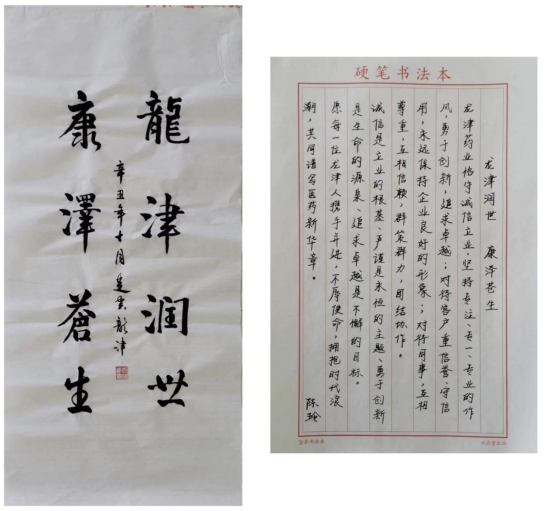 龍津润世
康澤蒼生
辛丑年 月 云龍津
硬笔书法本
龙津润世 康泽苍生
龙津药业恪守诚信立业,坚持专注、专一、专业的作
风,勇于创新,追求卓越;对待客户重信誉、守信
用,永远保持企业良好的形象;对待同事,互相
尊重,互相信赖,群策群力,团结协作。
诚信是立业的根基、严谨是永恒的主题、勇于创新
是生命的源泉、追求卓越是不懈的目标。
愿每一位龙津人携手并进,不辱使命,拥抱时代浪
潮,共同谱写医药新华章。
陈玲